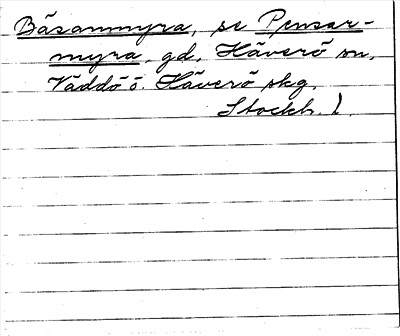 Båsammyra, se Pensar-
myra, gd, Häverö sn,
Väddö ö. Häverö skg,
Stockh. l.